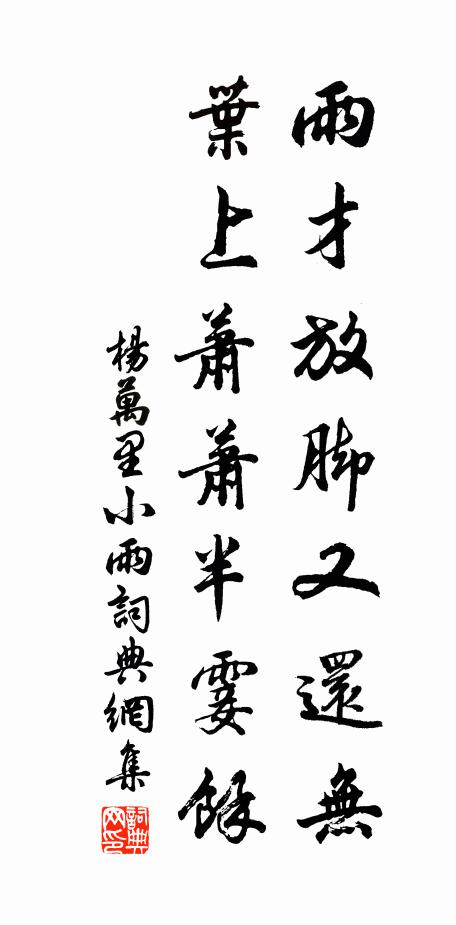 雨才放脚又還無
葉上蕭蕭半霎餘
楊萬里小雨詞典網集
詞典网印